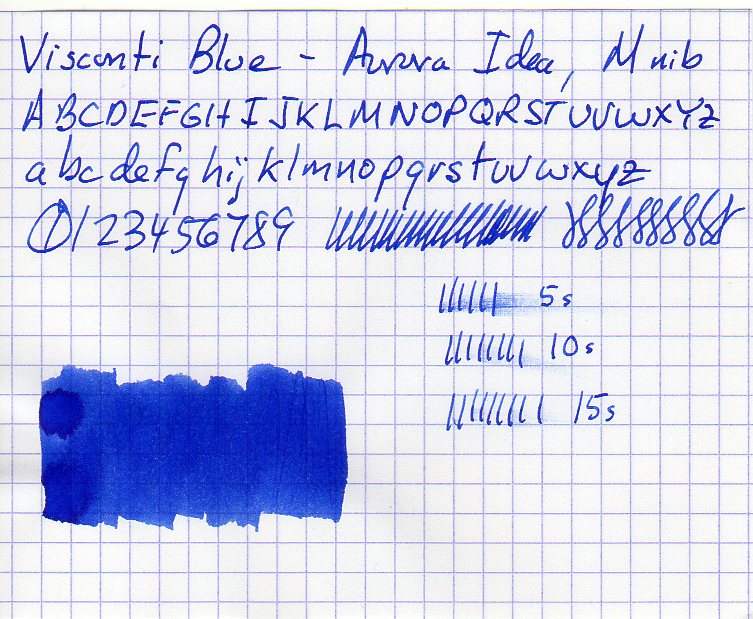 Visconti Blue - Aurora Idea, M nib
ABCDEFGHIJKLMNOPQRSTUVWXYZ
abcdefghijklmnopqrstuvwxyz
0123456789
5s
10s
15s